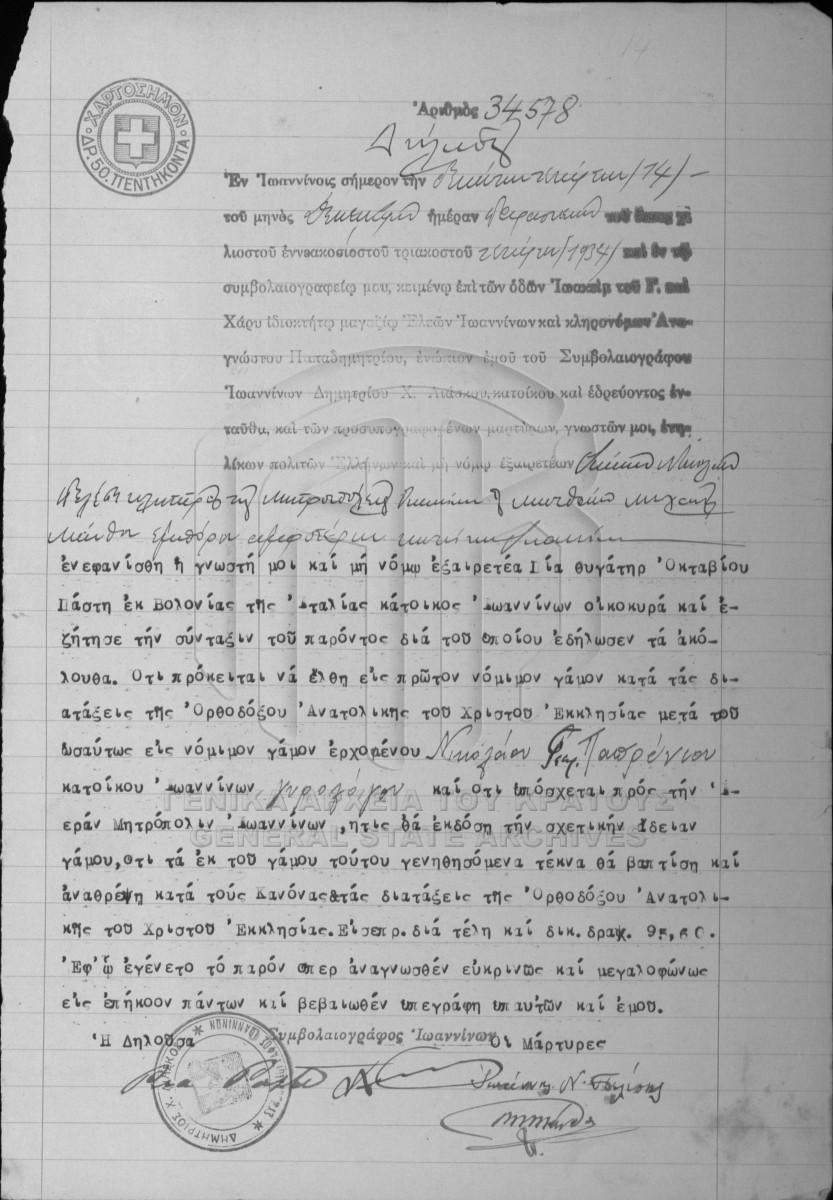 14
ΧΑΡΤΟΣΗΜΟΝ
ΔΡ. 50. ΠΕΝΤΗΚΟΝΤΑ
Ἀριθμὸς 34578
Δήλωσις
Ἐν Ἰωαννίνοις σήμερον τὴν δεκάτην τετάρτην /14/ —
τοῦ μηνὸς Δεκεμβρίου ἡμέραν Παρασκευὴν τοῦ ἔτους χι
λιοστοῦ ἐννεακοσιοστοῦ τριακοστοῦ τετάρτου /1934/ καὶ ἐν τῷ
συμβολαιογραφείῳ μου, κειμένῳ ἐπὶ τῶν ὁδῶν Ἰωακεὶμ τοῦ Γ. καὶ
Χάρυ ἰδιοκτήτῳ μαγαζίῳ Ἐλεῶν Ἰωαννίνων καὶ κληρονόμων Ἀνα-
γνώστου Παπαδημητρίου, ἐνώπιον ἐμοῦ τοῦ Συμβολαιογράφου
Ἰωαννίνων Δημητρίου Χ. Λιάσκου, κατοίκου καὶ ἑδρεύοντος ἐν-
ταῦθα, καὶ τῶν προσυπογραφομένων μαρτύρων, γνωστῶν μοι, ἐνη-
λίκων πολιτῶν Ἑλλήνων καὶ μὴ νόμῳ ἐξαιρετέων Νικολάου
κλητῆρος τῆς Μητροπόλεως Ματθαίου
Μάνθου ἐμπόρου ἀμφοτέρων κατοίκων
ἐνεφανίσθη ἡ γνωστή μοι καί μή νόμῳ ἐξαιρετέα Πία θυγάτηρ Ὀκταβίου
Πάστη ἐκ Βολονίας τῆς Ἰταλίας κάτοικος Ἰωαννίνων οἰκοκυρά καί ἐ-
ζήτησε τήν σύνταξιν τοῦ παρόντος διά τοῦ ὁποίου ἐδήλωσεν τά ἀκό-
λουθα. Οτι πρόκειται νά ἔλθη εἰς πρῶτον νόμιμον γάμον κατά τάς δι-
ατάξεις τῆς Ὀρθοδόξου Ἀνατολικῆς τοῦ Χριστοῦ Ἐκκλησίας μετά τοῦ
ὡσαύτως εἰς νόμιμον γάμον ἐρχομένου Νικολάου Γεωρ. Παπρένιου
κατοίκου Ἰωαννίνων καί ὁτι ὑπόσχεται πρός τήν Ἱ-
εράν Μητρόπολιν Ἰωαννίνων, ἡτις θά ἐκδόση τήν σχετικήν ἄδειαν
γάμου, ὁτι τά ἐκ τοῦ γάμου τούτου γεννηθησόμενα τέκνα θά βαπτίση καί
ἀναθρέψη κατά τούς Κανόνας & τάς διατάξεις τῆς Ὀρθοδόξου Ἀνατολι-
κῆς τοῦ Χριστοῦ Ἐκκλησίας. Εἰσεπρ. διά τέλη καί δικ. δραχ. 95,60.
Ἐφ' ᾧ ἐγένετο τό παρόν ὁπερ ἀναγνωσθέν εὐκρινῶς καί μεγαλοφώνως
εἰς ἐπήκοον πάντων καί βεβαιωθέν ὑπεγράφη ὑπαὐτῶν καί ἐμοῦ.
Ἡ Δηλοῦσα Συμβολαιογράφος Ἰωαννίνων Οἱ Μάρτυρες
ΓΕΝΙΚΑ ΑΡΧΕΙΑ ΤΟΥ ΚΡΑΤΟΥΣ
GENERAL STATE ARCHIVES